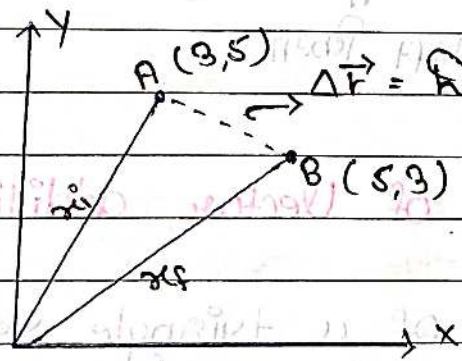 Y
A (3,5)
Δr⃗ =
B (5,3)
ri
rf
X